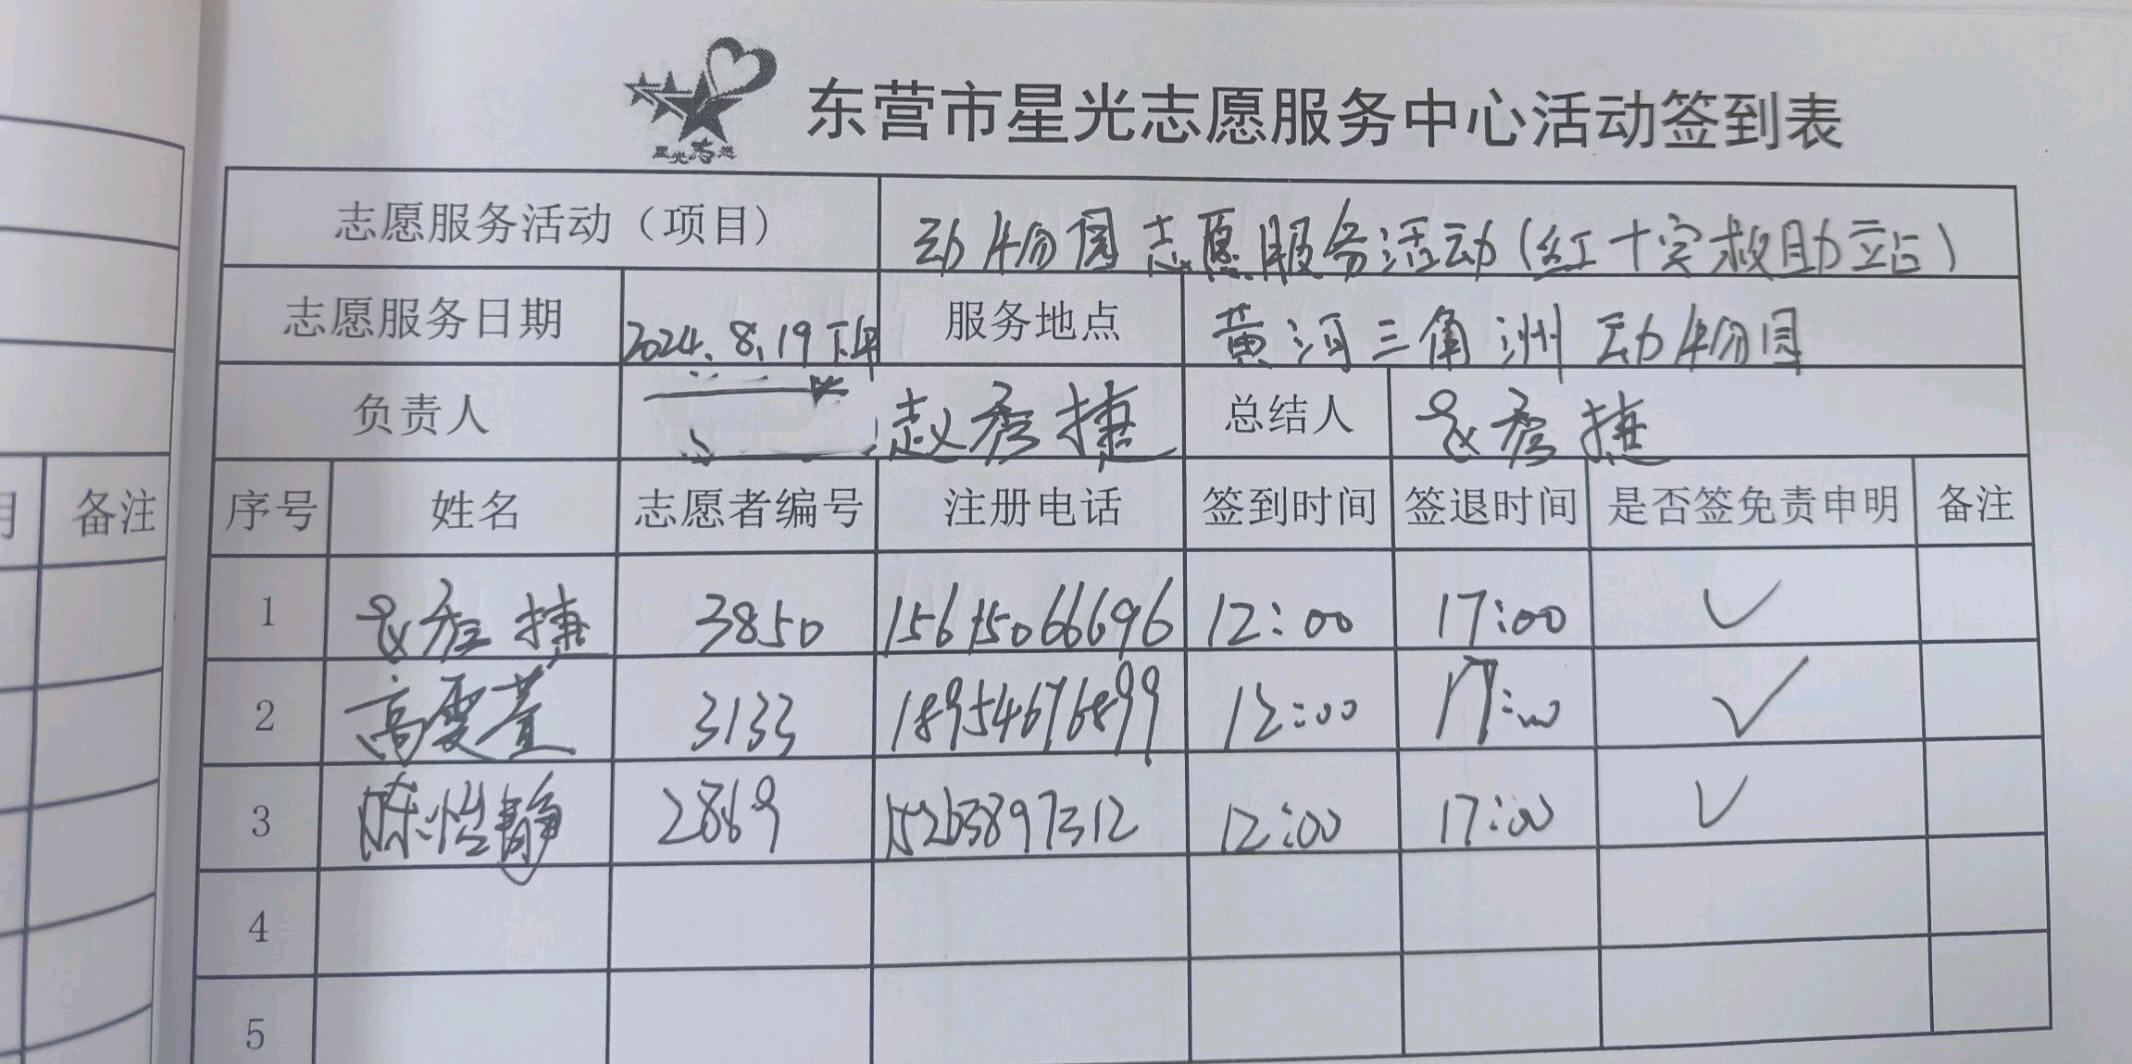 星光志愿
东营市星光志愿服务中心活动签到表
志愿服务活动（项目） 动物园志愿服务活动（红十字救助站）
志愿服务日期 2024.8.19下午 服务地点 黄河三角洲动物园
负责人 赵秀捷 总结人 秀捷
备注
序号 姓名 志愿者编号 注册电话 签到时间 签退时间 是否签免责申明 备注
1 秀捷 3850 12:00 17:00 ✓
2 高雯萱 3133 18954676899 12:00 17:00 ✓
3 陈怡静 2869 15263897312 12:00 17:00 ✓
4
5